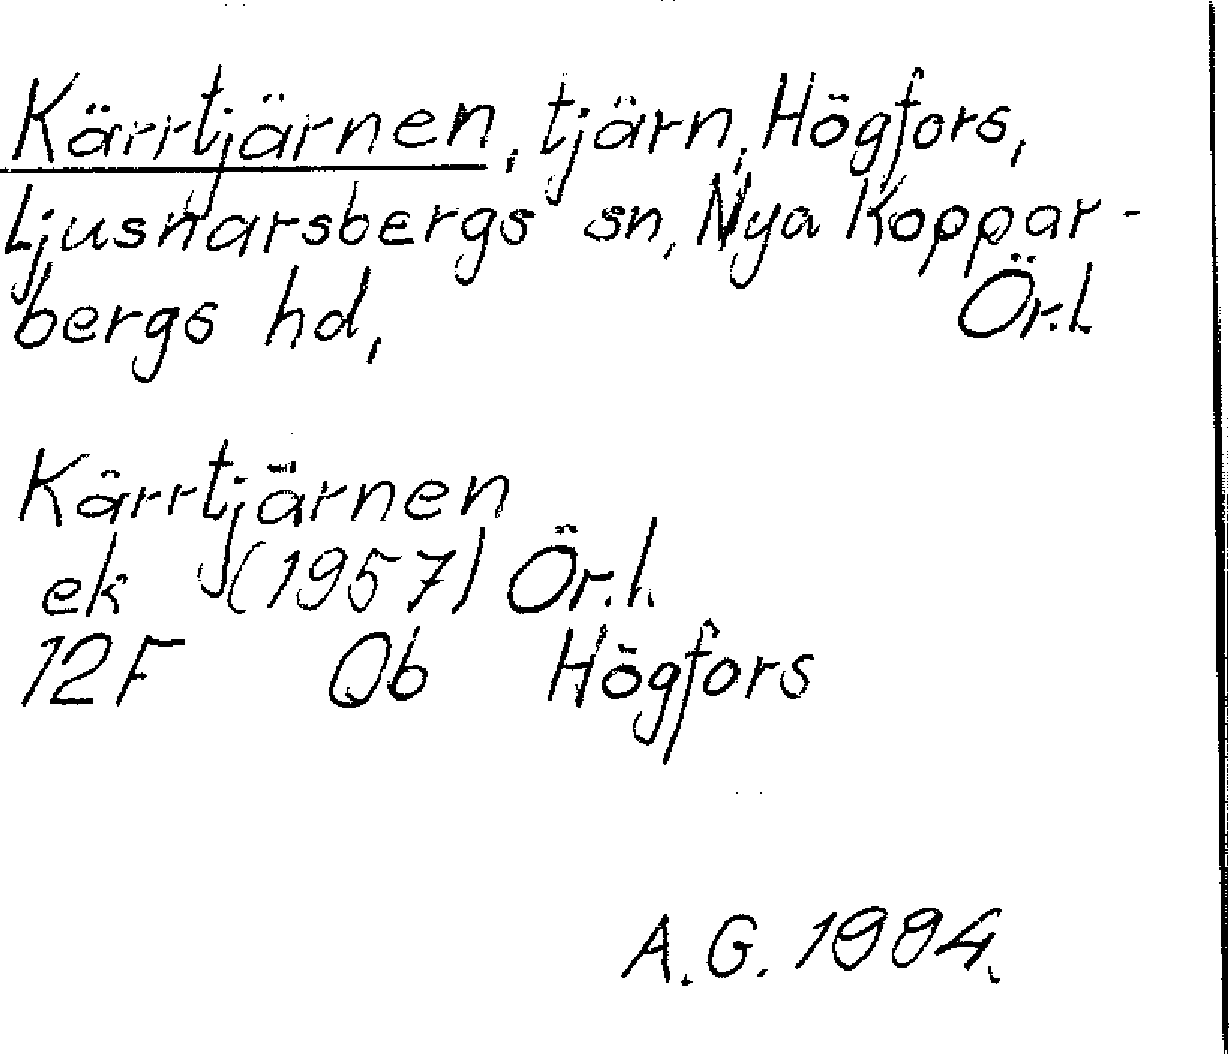 Kärrtjärnen, tjärn, Högfors,
Ljusnarsbergs sn, Nya Koppar-
bergs hd, Ör.l.
Kärrtjärnen
ek (1957) Ör.l.
12F 0b Högfors
A.G. 1994.